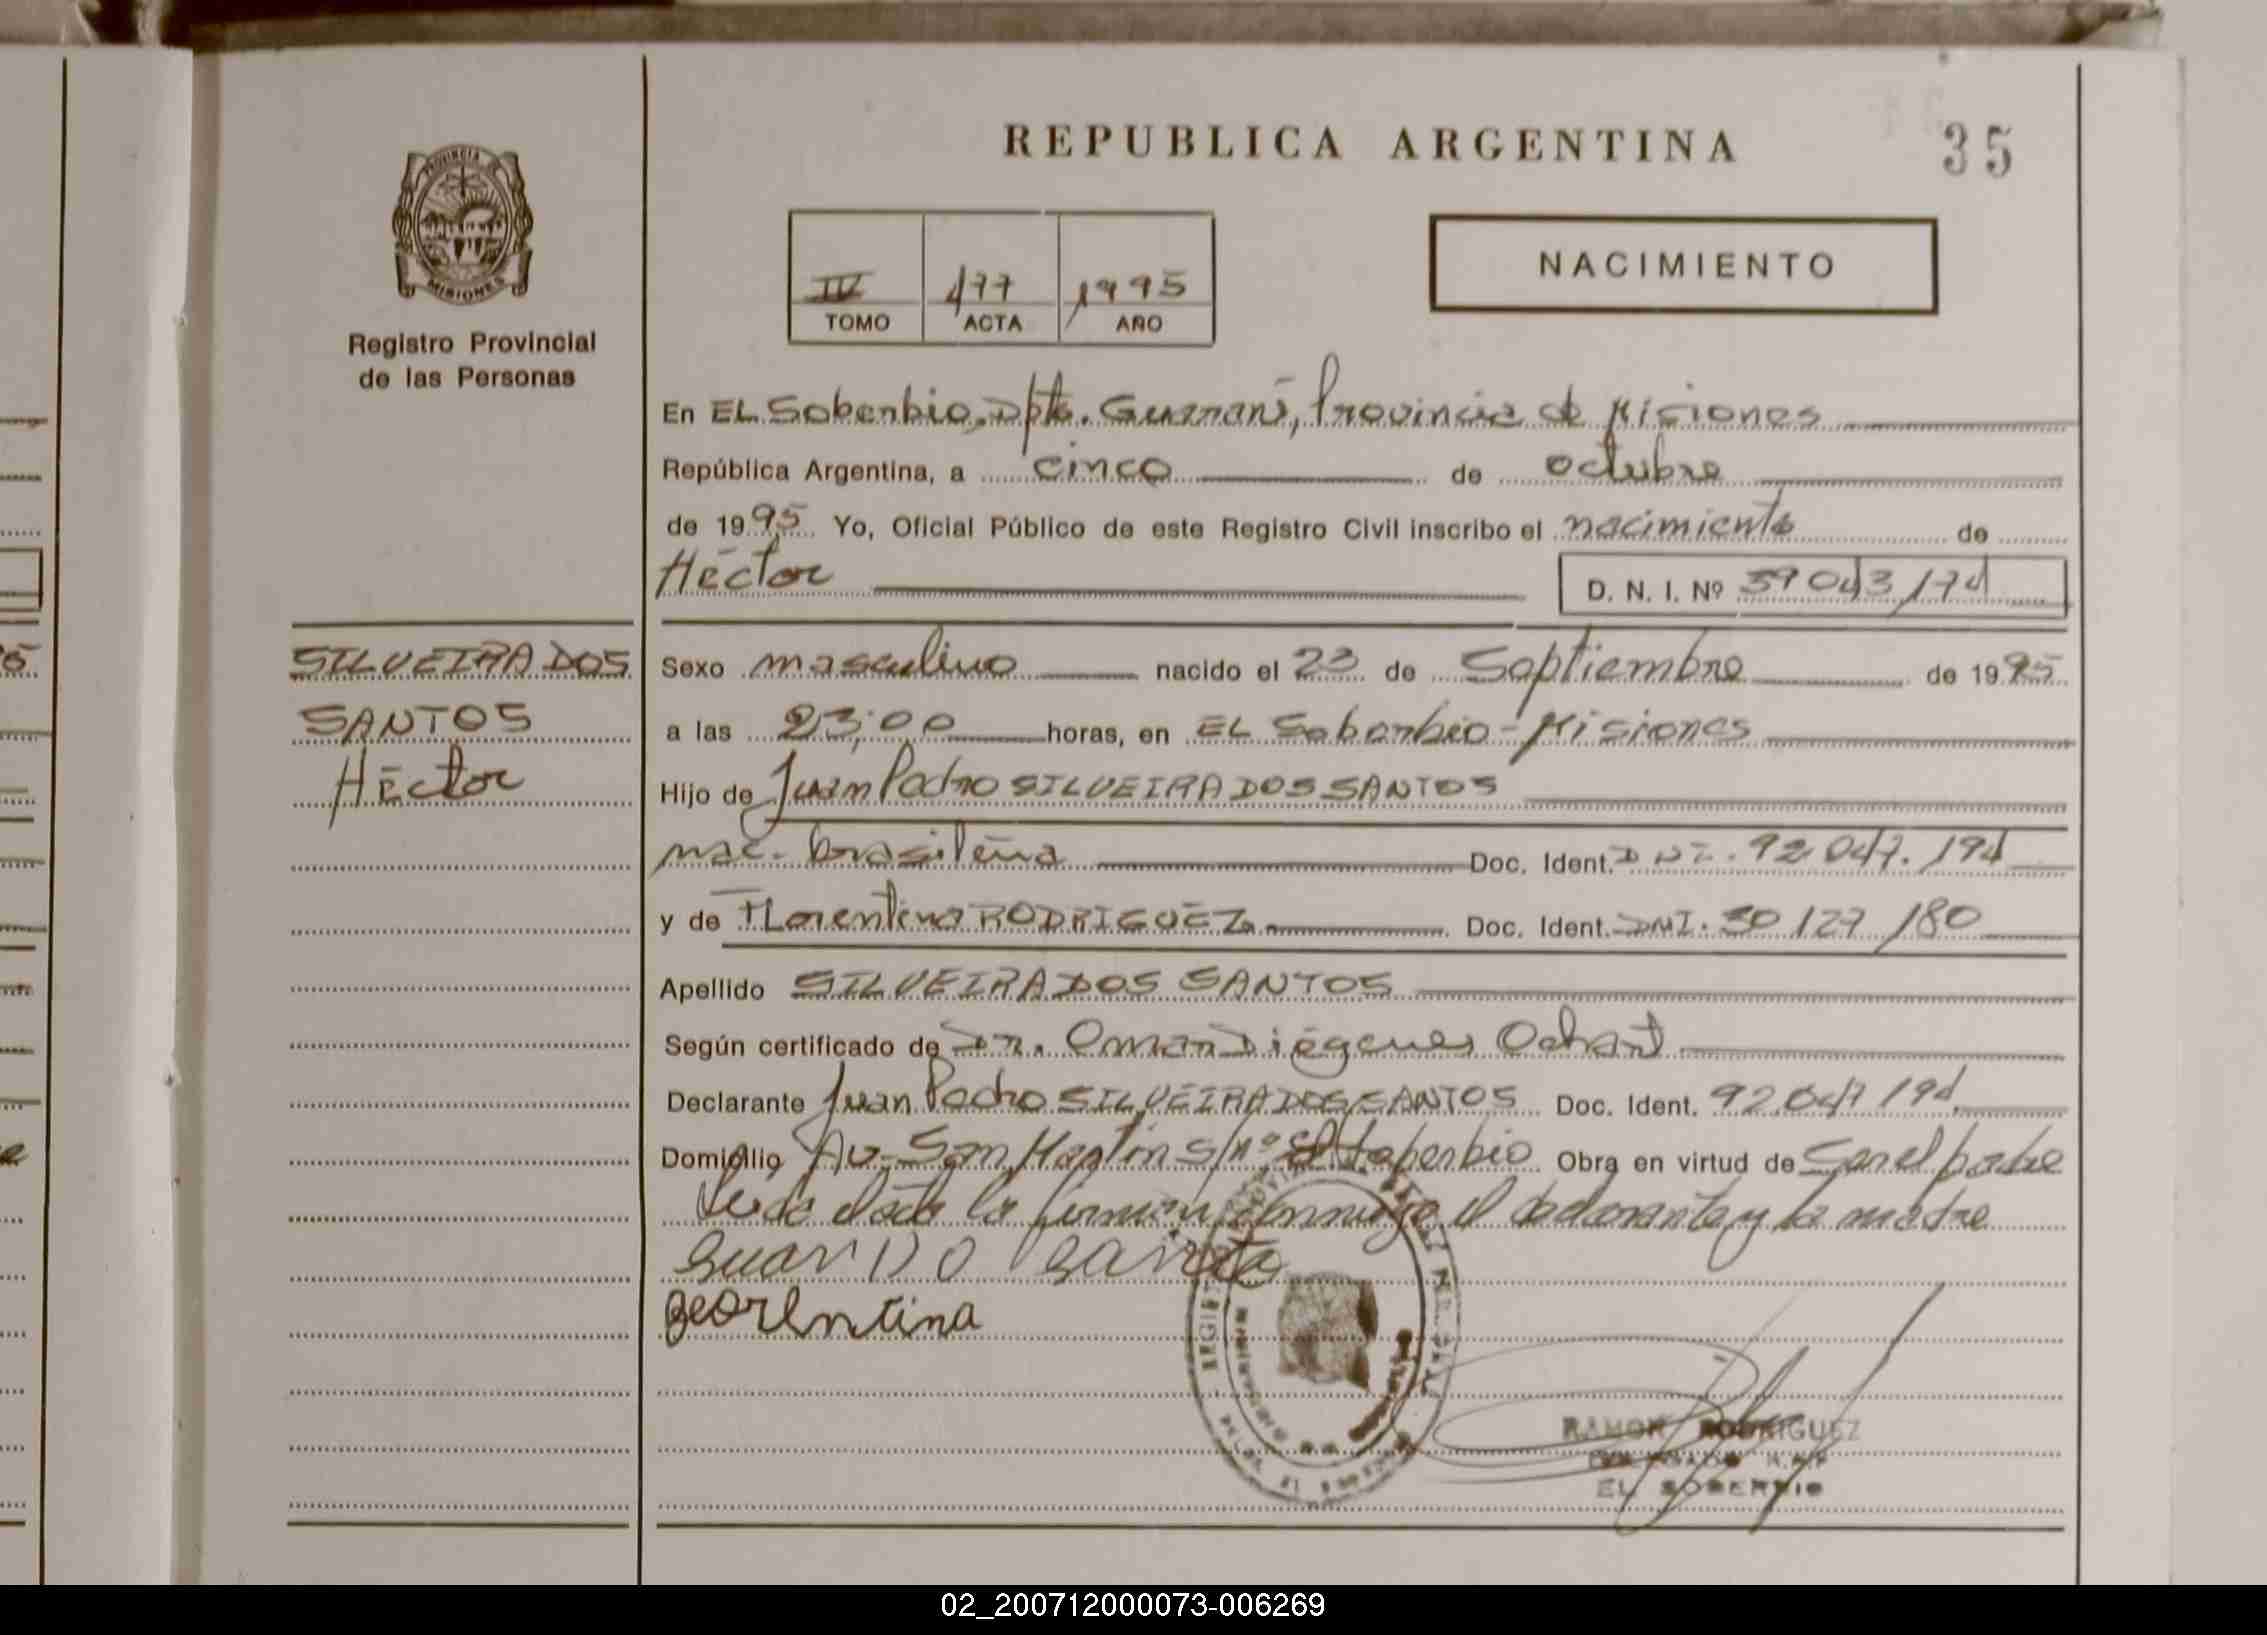 REPUBLICA ARGENTINA
35
PROVINCIA DE
MISIONES
Registro Provincial
de las Personas
IV 477 1995
TOMO ACTA AÑO
NACIMIENTO
En EL Soberbio, Dpto. Guaraní, Provincia de Misiones
República Argentina, a cinco de octubre
de 1995 Yo, Oficial Público de este Registro Civil inscribo el nacimiento de
Héctor D. N. I. Nº 39 043 174
SILVEIRA DOS
SANTOS
Héctor
Sexo masculino nacido el 23 de Septiembre de 1995
a las 23:00 horas, en EL Soberbio - Misiones
Hijo de Juan Pedro SILVEIRA DOS SANTOS
nac. brasileña Doc. Ident. DNI. 92 047. 194
y de Florentina RODRIGUEZ Doc. Ident. DNI. 30 127 180
Apellido SILVEIRA DOS SANTOS
Según certificado de Dr. Omar Diógenes Ochart
Declarante Juan Pedro SILVEIRA DOS SANTOS Doc. Ident. 92.047 194
Domicilio Av. San Martín S/nº El Soberbio Obra en virtud de Ser el padre
Leída el acta la firman conmigo el declarante y la madre
RAMON RODRIGUEZ
EL SOBERBIO
02_200712000073-006269